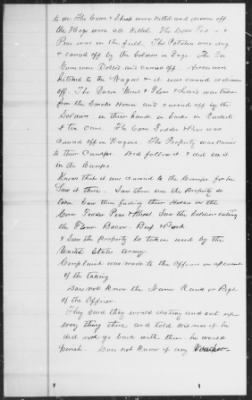 to me The Corn & Wheat were killed and driven off
the Hogs were all killed. The Corn Pea &
Peas was in the field. The Potatoes was dug
& carried off by the Soldiers in Bags. The Six
Summer Rollers and Canvas off
hitched to the Wagon & it was carried
off. The Bacon Flour & Lard was taken
from the Smoke House and carried off by the
Soldiers in their hands in Sacks in Buckets
& Tin Cans. The Corn Fodder & Peas was
carried off in Wagons. The Property was carried
to their Camps. Did follow it & did see it
in the Camps
Know that it was carried to the Camps for he
Saw it there. Saw them use the Property so
taken Saw them feeding their Horses on the
Corn Fodder Peas & Wheat Saw the Soldiers eating
the Flour Bacon Beef & Pork
& Saw the property so taken used by the
United States army
Complaint was made to the Officer in command
of the taking
Does not know the Name Rank or Regt
of the Officer
They said they would destroy and eat up
every thing there and told witness if he
did not go back with them he would
perish. Does not know if any Voucher